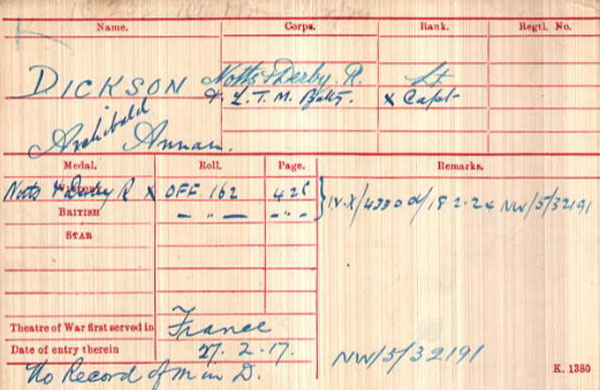 Name. Corps. Rank. Regtl. No.
DICKSON Notts & Derby. R. Lt
& L. T. M. Batt. x Capt
Archibald Annan.
Medal. Roll. Page. Remarks.
Notts & Derby R x OFF. 162
BRITISH — " — — " — IV.X/4330 18.2.24 NW/5/32191
STAR
Theatre of War first served in France
Date of entry therein 27. 2. 17. NW/5/32191
No Record of M in D. K. 1380